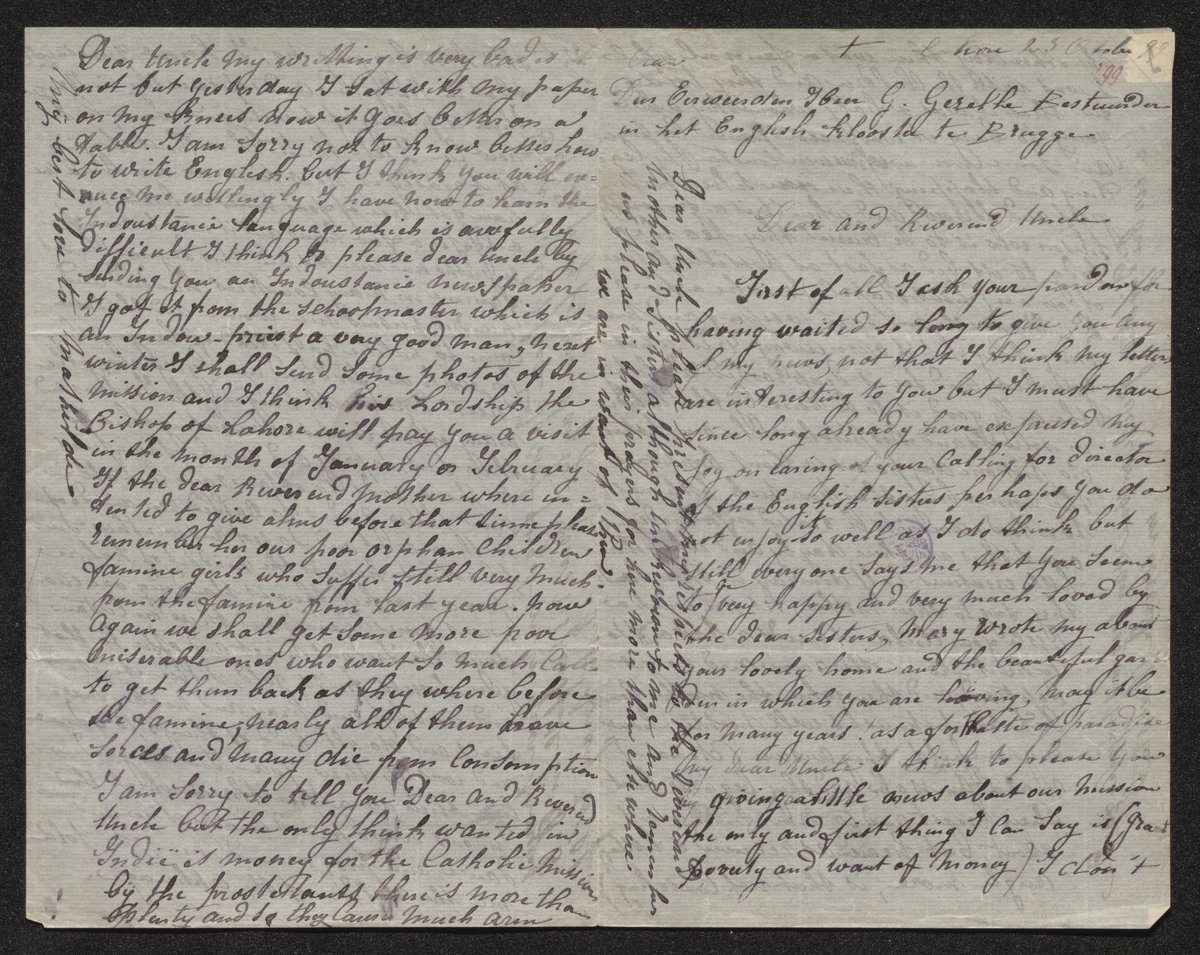 + Lahore 23 Octobre
'99
Den Eerweerden Heer G. Gezelle Bestuurder
in het English klooster te Brugge
Dear and Reverend Uncle
First of all I ask your pardon for
having waited so long to give you any
of my news, not that I think my letters
are interesting to you but I must have
since long already have expressed my
joy on earing of your calling for director
of the English Sisters perhaps you do
not enjoy it so well as I do think but
still every one says me that you seem
to very happy and very much loved by
the dear Sisters, Mary wrote my about
your lovely home and the beautiful gar
den in which you are living, may it be
for many years! as a for of paradise
My dear Uncle I think to please you
by giving a little news about our mission
the only and first thing I can say is (great
poverty and want of money) I don't
Dear Uncle please present my respects to the Reverend
Mother and Sisters although unknown to me and
please in their prayers for here more than elsewhere
we are in want of them.
Dear Uncle my writting is very bad is it
not but yesterday I sat with my paper
on my knees now it goes better on a
table. I am sorry not to know better how
to write English. but I think you will ex=
cuse me willingly I have now to learn the
Indoustanie language which is awfully
difficult I think to please dear Uncle by
sending you an Indoustanie newspaper
I got it from the schoolmaster which is
an Indow-priest a very good man, next
winter I shall send some photos of the
mission and I think his Lordship the
Bishop of Lahore will pay you a visit
in the month of January or February
If the dear Reverend Mother where in=
tented to give alms before that time please
remember her our poor orphan children
famine girls who suffer still very much
from the famine from last year. now
again we shall get some more poor
miserable ones who want so much care
to get them back as they where before
the famine, nearly all of them have
sores and many die from consomption
I am sorry to tell you Dear and Reverend
Uncle but the only think wanted in
Indië is money for the Catholic Mission
by the prostestants there is more than
plenty and so they cause much arm
My best love to Mathilde